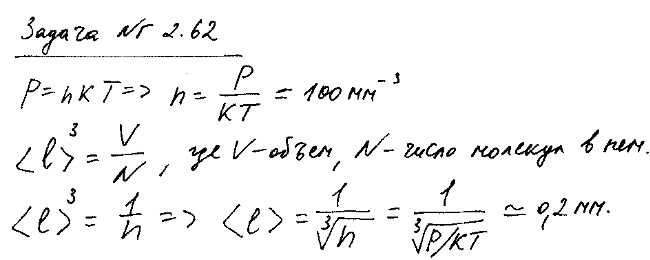 Задача № 2.62
P = nKT => n = P/KT = 100 мм⁻³
<l>³ = V/N, где V-объем, N-число молекул в нем.
<l>³ = 1/n => <l> = 1/∛n = 1/∛(P/KT) ≃ 0,2 мм.